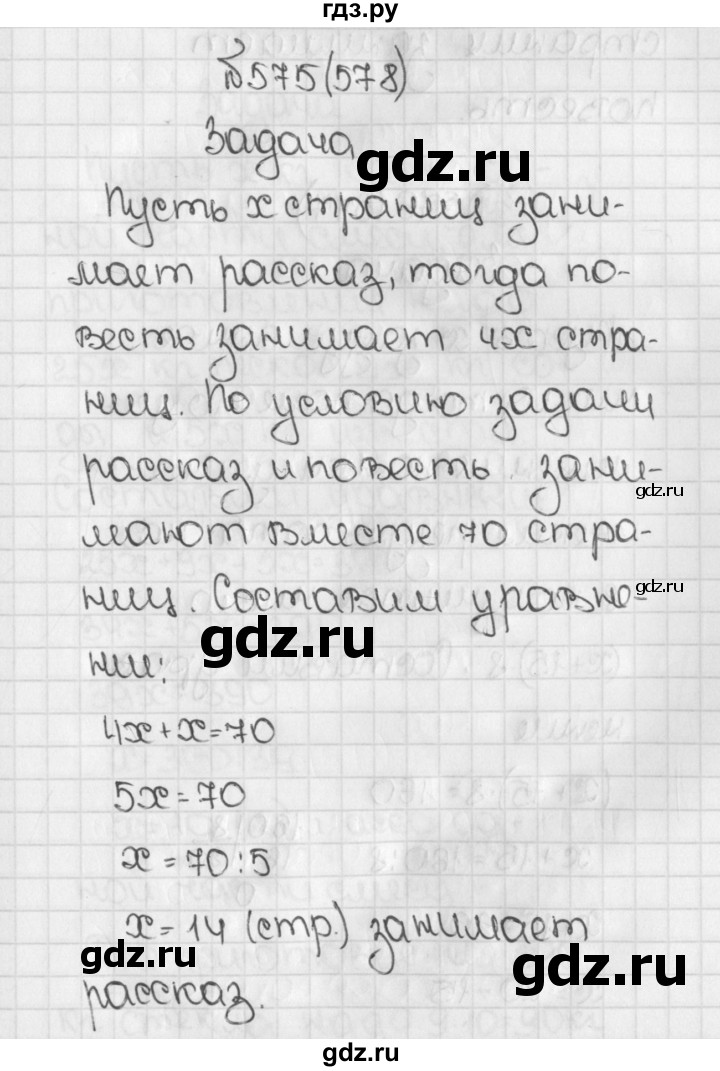 гдз.ру
№575(578)
Задача
gdz.ru
Пусть x страниц зани-
мает рассказ, тогда по-
весть занимает 4x стра-
ниц. По условию задачи
рассказ и повесть зани-
gdz.ru
мают вместе 70 стра-
ниц. Составим уравне-
gdz.ru
gdz.ru
нии:
4x+x=70
5x=70
x=70:5
x=14 (стр.) занимает
gdz.ru
gdz.ru
рассказ.
gdz.ru